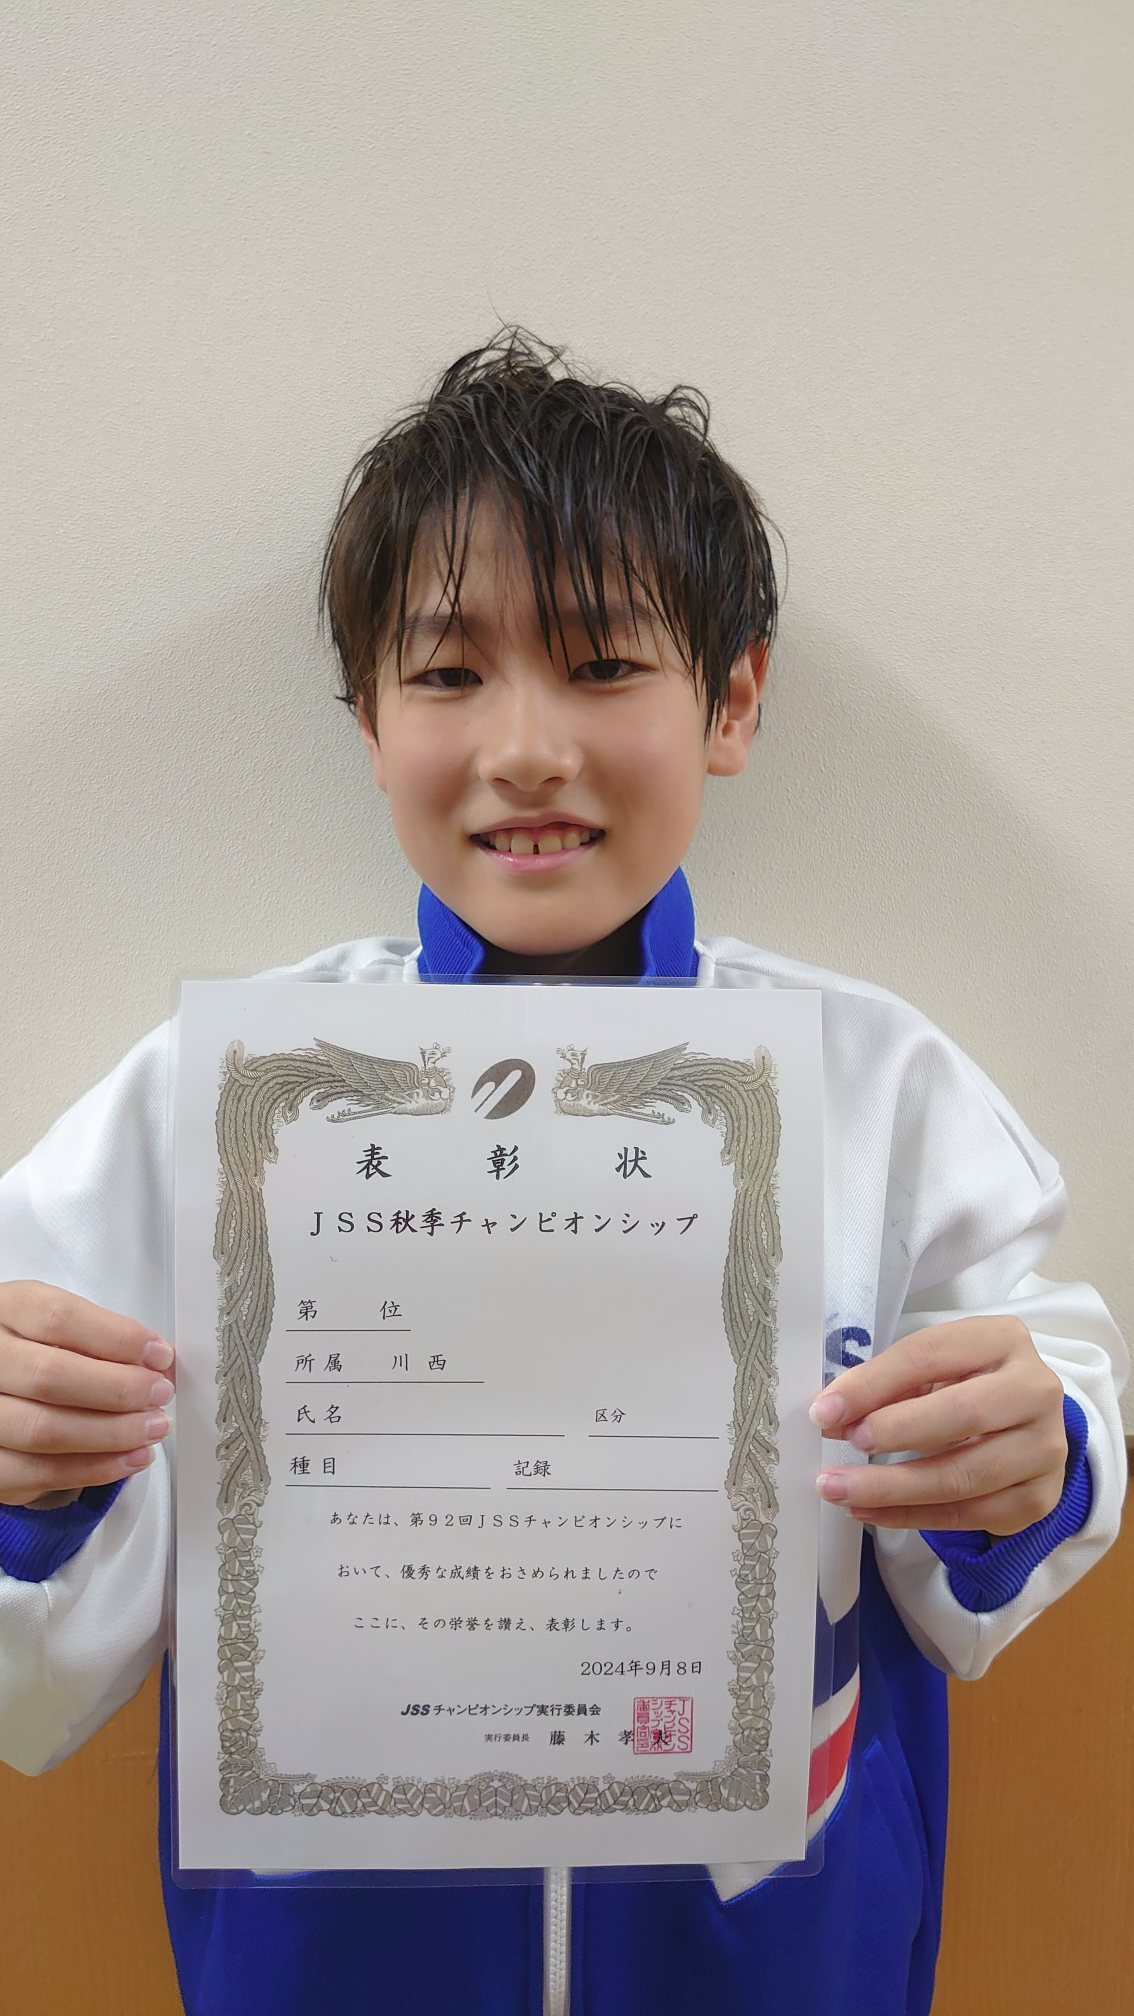 表彰状
JSS秋季チャンピオンシップ
第　位
所属　川西
氏名　区分
種目　記録
あなたは、第92回JSSチャンピオンシップに
おいて、優秀な成績をおさめられましたので
ここに、その栄誉を讃え、表彰します。
2024年9月8日
JSSチャンピオンシップ実行委員会
実行委員長　藤木孝夫
S